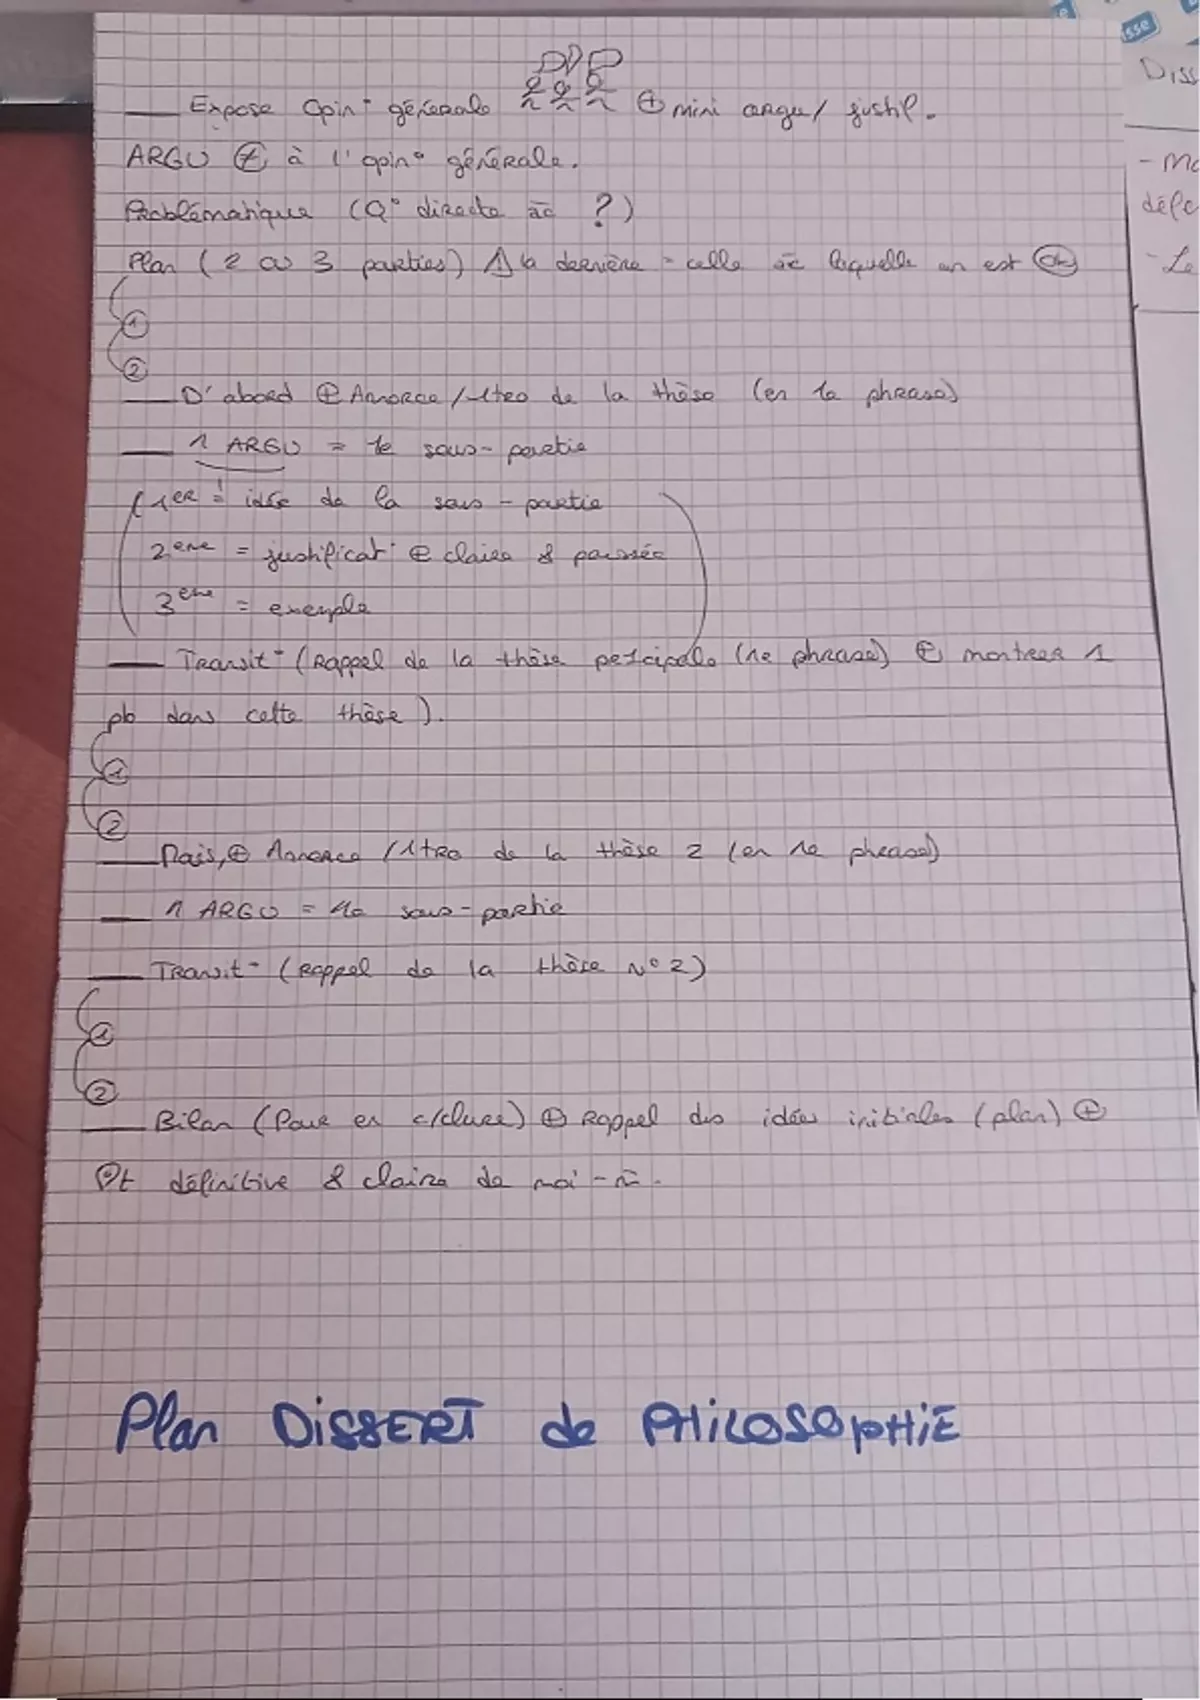 Expose opin° générale ⊕ mini argu/ justif.
ARGU ≠ à l'opin° générale.
Problématique (Q° directe āc ?)
Plan (2 ou 3 parties) ⚠ la dernière = celle āc laquelle on est ok
①
②
D'abord ⊕ Annonce /Itro de la thèse (en 1e phrase)
1 ARGU = 1e sous-partie
(1er = idée de la sous-partie
2eme = justificat° ⊕ claire & poussée
3eme = exemple
Transit° (Rappel de la thèse pricipale (1e phrase) ⊕ montrer 1
pb dans cette thèse).
①
②
Mais, ⊕ Annonce /Itro de la thèse 2 (en 1e phrase)
1 ARGU = 1e sous-partie
Transit° (Rappel de la thèse N°2)
①
②
Bilan (Pour en c/clure) ⊕ Rappel des idées initiales (plan) ⊕
Pt définitive & claire de moi-m̄.
Plan DISSERT de PHILOSOPHIE
isse
Diss
- Mo
défc
- Le